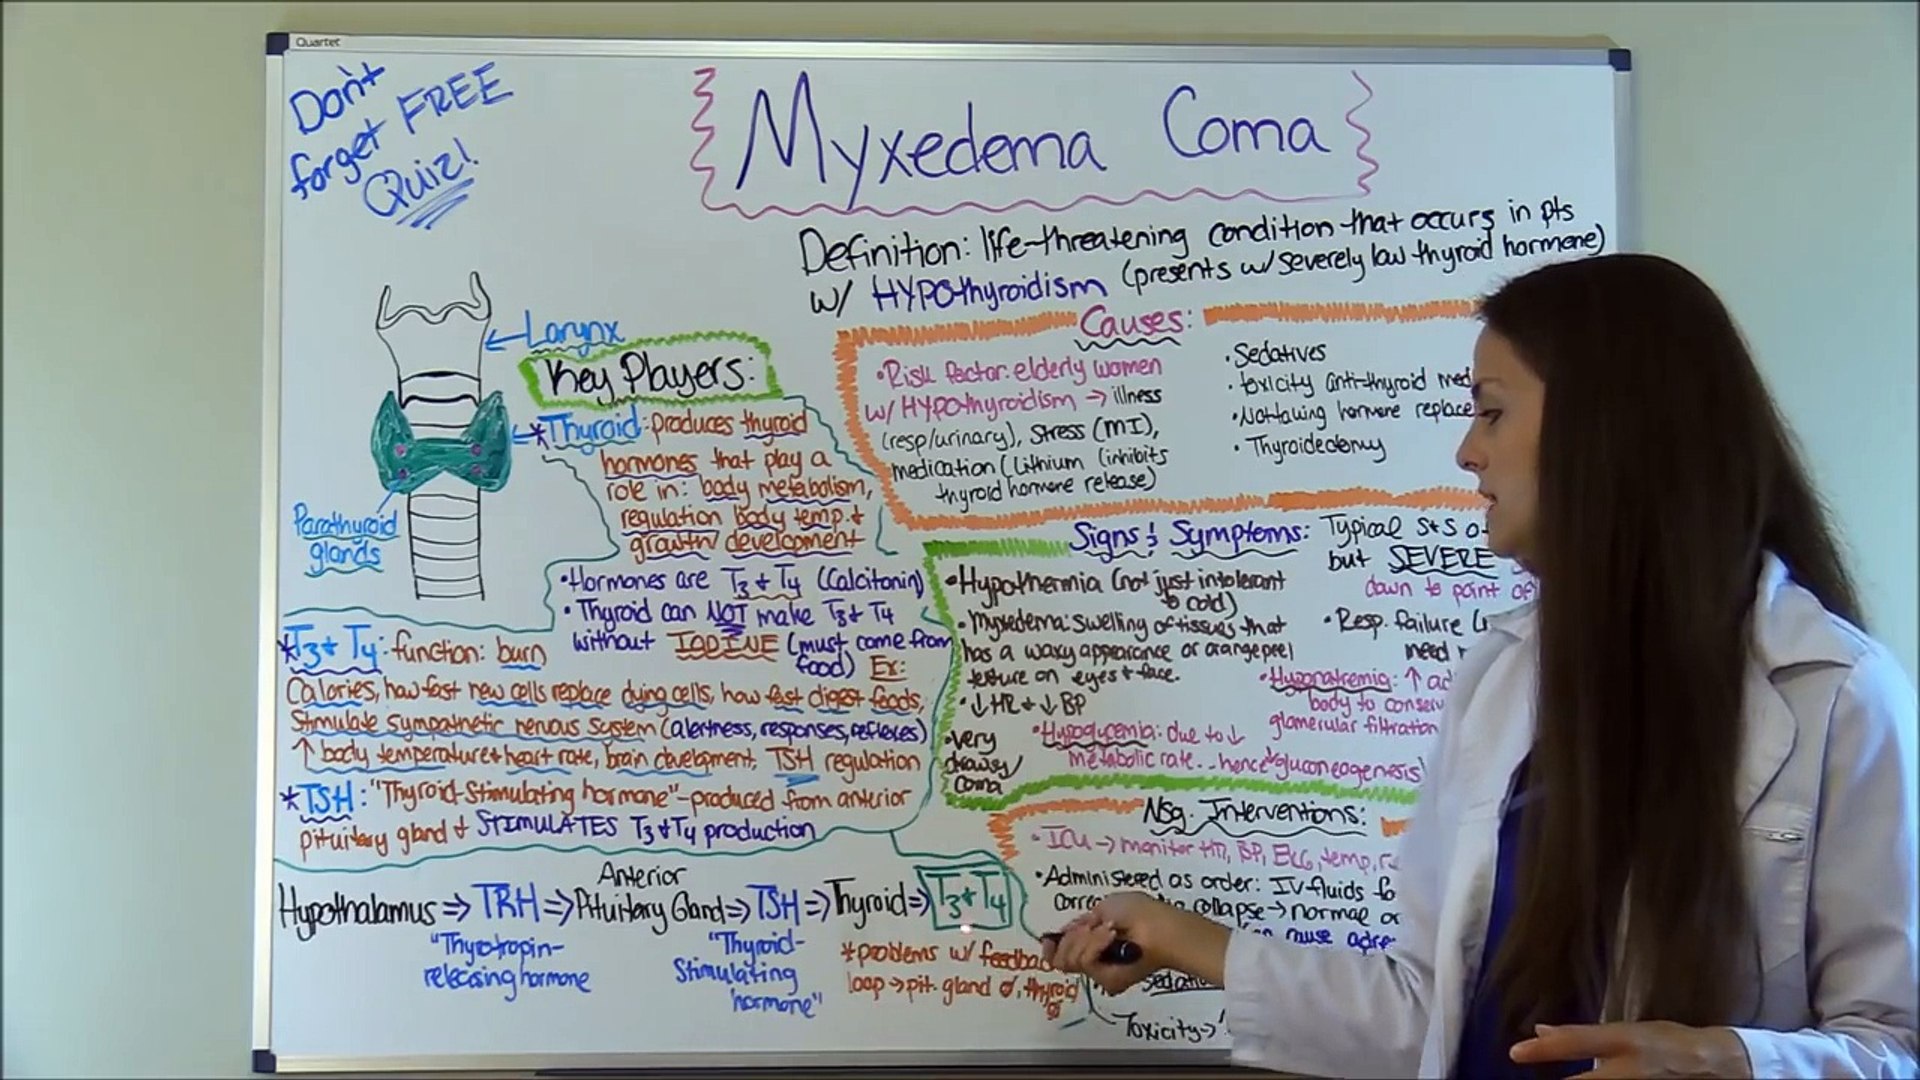 Quartet
Don't
forget FREE
Quiz!
Myxedema Coma
Definition: life-threatening condition that occurs in pts
w/ HYPOthyroidism (presents w/ severely low thyroid hormone)
Larynx
Key Players:
*Thyroid: produces thyroid
hormones that play a
role in: body metabolism,
regulation body temp. +
growth/development
Parathyroid
glands
•Hormones are T3 + T4 (Calcitonin)
•Thyroid can NOT make T3 + T4
without IODINE (must come from
food) Ex:
*T3 + T4: function: burn
Calories, how fast new cells replace dying cells, how fast digest foods,
Stimulate sympathetic nervous system (alertness, responses, reflexes)
↑ body temperature + heart rate, brain development, TSH regulation
*TSH: "Thyroid-Stimulating hormone"-produced from anterior
pituitary gland + STIMULATES T3 + T4 production
Hypothalamus ⇒ TRH ⇒ Anterior Pituitary Gland ⇒ TSH ⇒ Thyroid ⇒ T3 + T4
"Thyrotropin-
releasing hormone
"Thyroid-
Stimulating
hormone"
*problems w/ feedback
loop → pit. gland, thyroid
Causes:
•Risk factor: elderly women
w/ HYPOthyroidism → illness
(resp/urinary), stress (MI),
medication (Lithium (inhibits
thyroid hormone release)
•Sedatives
•toxicity anti-thyroid med
•Not taking hormone replace
•Thyroidectomy
Signs & Symptoms: Typical s+s
but SEVERE
down to point of
•Hypothermia (not just intolerant
to cold)
•Myxedema: swelling of tissues that
has a waxy appearance or orange peel
texture on eyes + face.
•↓HR + ↓BP
•Very
drowsy/
coma
•Hypoglycemia: due to ↓
metabolic rate... hence ↓gluconeogenesis
•Resp. failure
need
•Hyponatremia: ↑
body to conserv
glomerular filtration
Nsg. Interventions:
•ICU → monitor HR, BP, EKG, temp,
•Administered as order: IV fluids
collapse → normal
cause
Toxicity →